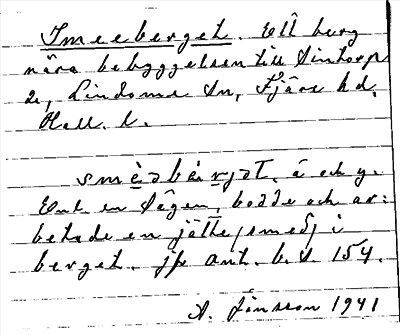 Smeeberget. Ett berg
nära bebyggelsen till Sintorp
2, Lindome sn, Fjäre hd,
Hall. l.
smèəbä̀rjət. ä och y.
Enl. en sägen, bodde och ar=
betade en jätte (smed) i
berget. jfr Ant. b. s. 154.
A. Jönsson 1941